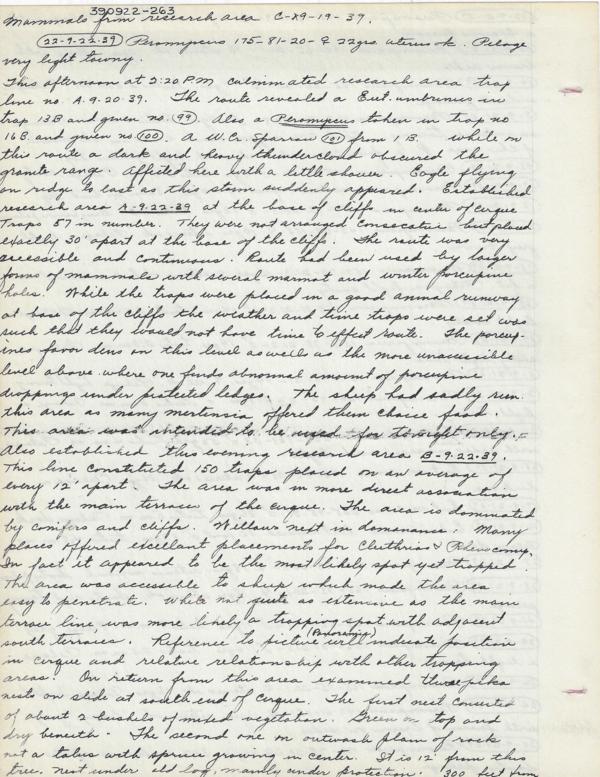 390922-263
Mammals from research area C-X9-19-39.
22-9-22-39 Peromyscus 175-81-20-♀ 22grs. uterus ok. Pelage
very light tawny.
This afternoon at 2:20 P.M. culminated research area trap
line no. A-9-20-39. The route revealed a Eut. umbrinus in
trap 13B and given no. 99. Also a Peromyscus taken in trap no
16B and given no. 100. A W.Cr. Sparrow 101 from 1B. While on
this route a dark and heavy thundercloud obscured the
granite range. Affected here with a little shower. Eagle flying
on ridge to east as this storm suddenly appeared. Established
research area A-9-22-39 at the base of cliffs in center of cirque
Traps 57 in number. They were not arranged consecutive but placed
exactly 30' apart at the base of the cliffs. The route was very
accessible and continuous. Route had been used by larger
forms of mammals with several marmot and winter porcupine
holes. While the traps were placed in a good animal runway
at base of the cliffs the weather and time traps were set was
such that they would not have time to effect route. The porcup-
ines favor dens on this level as well as the more unaccessible
level above where one finds abnormal amount of porcupine
droppings under protected ledges. The sheep had sadly run
this area as many mertensia offered them choice food.
This area was intended to be used for tonight only.
Also established this evening research area B-9-22-39.
This line constituted 150 traps placed on an average of
every 12' apart. The area was in more direct association
with the main terrace of the cirque. The area is dominated
by conifers and cliffs. Willows next in domanance. Many
places offered excellant placements for Clethrios & Phenocomys.
In fact it appeared to be the most likely spot yet trapped.
The area was accessible to sheep which made the area
easy to penetrate. While not quite as extensive as the main
terrace line was more likely a trapping spot with adjacent
south terraces. Reference to picture (Panoramic) will indicate position
in cirque and relative relationship with other trapping
areas. On return from this area examined three pika
nests on slide at south end of cirque. The first nest consisted
of about 2 bushels of mixed vegetation. Green on top and
dry beneath. The second one on outwash plain of rock
not a talus with spruce growing in center. It is 12' from this
tree. nest under old log, mainly under protection. 300 feet from